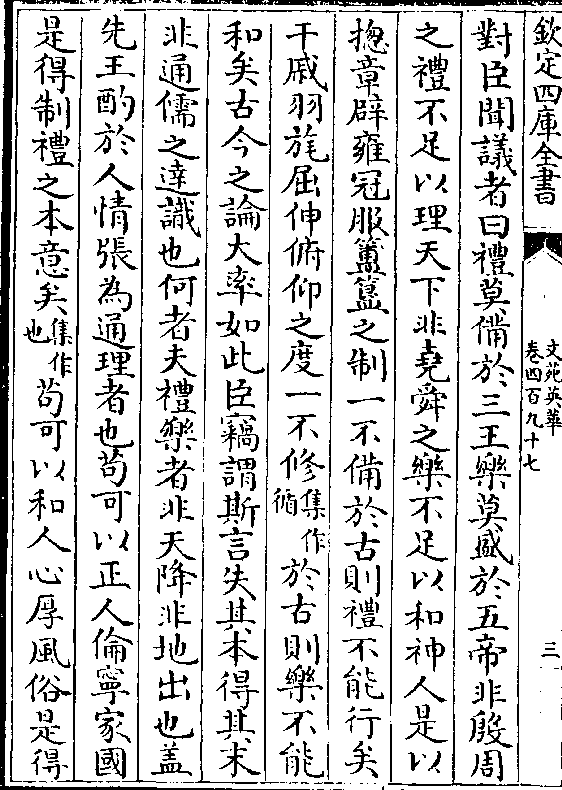 欽定四庫全書
文苑英華
卷四百九十七
三
對臣聞議者曰禮莫備於三王樂莫盛於五帝非殷周
之禮不足以理天下非堯舜之樂不足以和神人是以
揔章辟雍冠服簠簋之制一不備於古則禮不能行矣
干戚羽旄屈伸俯仰之度一不修集作循於古則樂不能
和矣古今之論大率如此臣竊謂斯言失其本得其末
非通儒之達識也何者夫禮樂者非天降非地出也盖
先王酌於人情張為通理者也苟可以正人倫寧家國
是得制禮之本意矣集作也苟可以和人心厚風俗是得